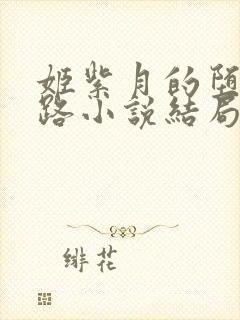 姬紫月的堕
路小說結局
緋花